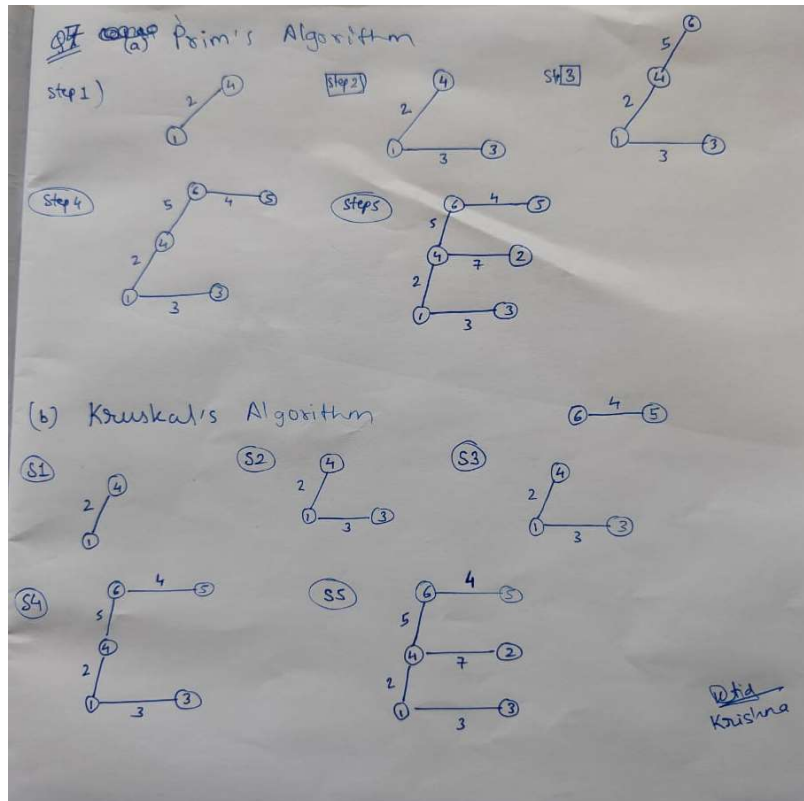 Q7 (a) Prim's Algorithm
Step 1)
2 4
1
Step 2
4
2
1 3 3
St 3
6
5
4
2
1 3 3
Step 4
6 4 5
5
4
2
1 3 3
Step 5
6 4 5
5
4 7 2
2
1 3 3
(b) Kruskal's Algorithm
6 4 5
S1
4
2
1
S2
4
2
1 3 3
S3
4
2
1 3 3
S4
6 4 5
5
4
2
1 3 3
S5
6 4 5
5
4 7 2
2
1 3 3
Krishna